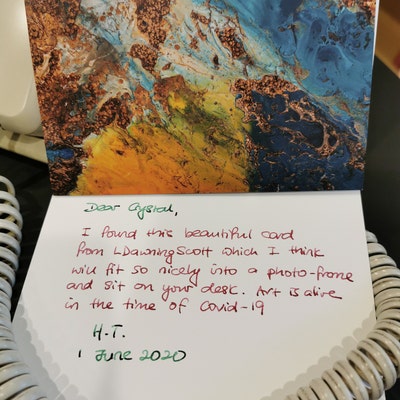 Dear Crystal,
I found this beautiful card
from LDawningScott which I think
will fit so nicely into a photo-frame
and sit on your desk. Art is alive
in the time of Covid-19
H.T.
1 June 2020